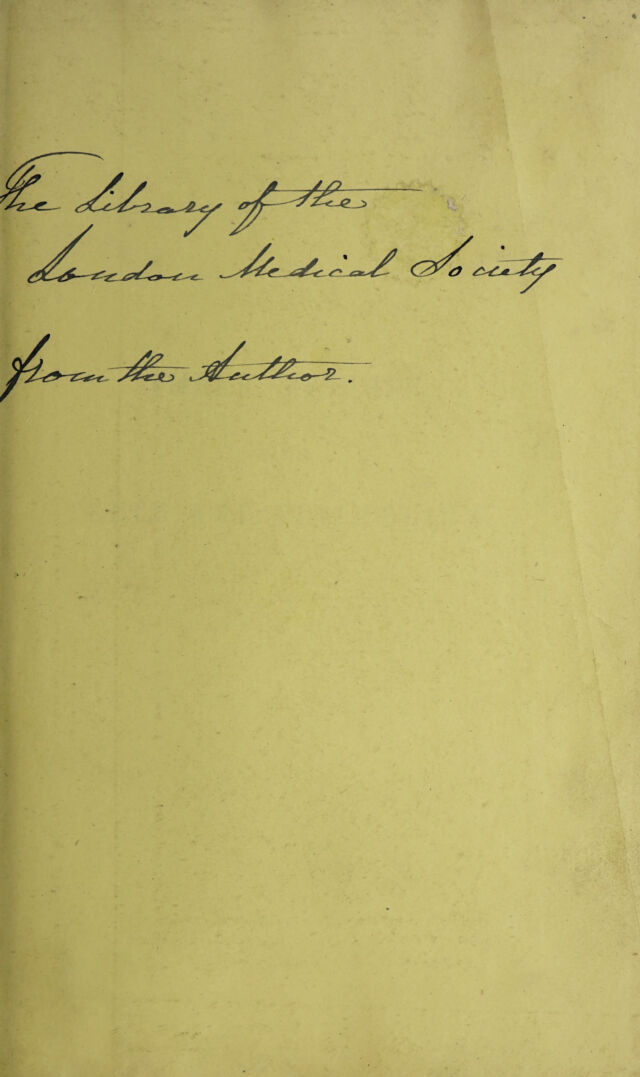 The Library of the
London Medical Society
from the Author.